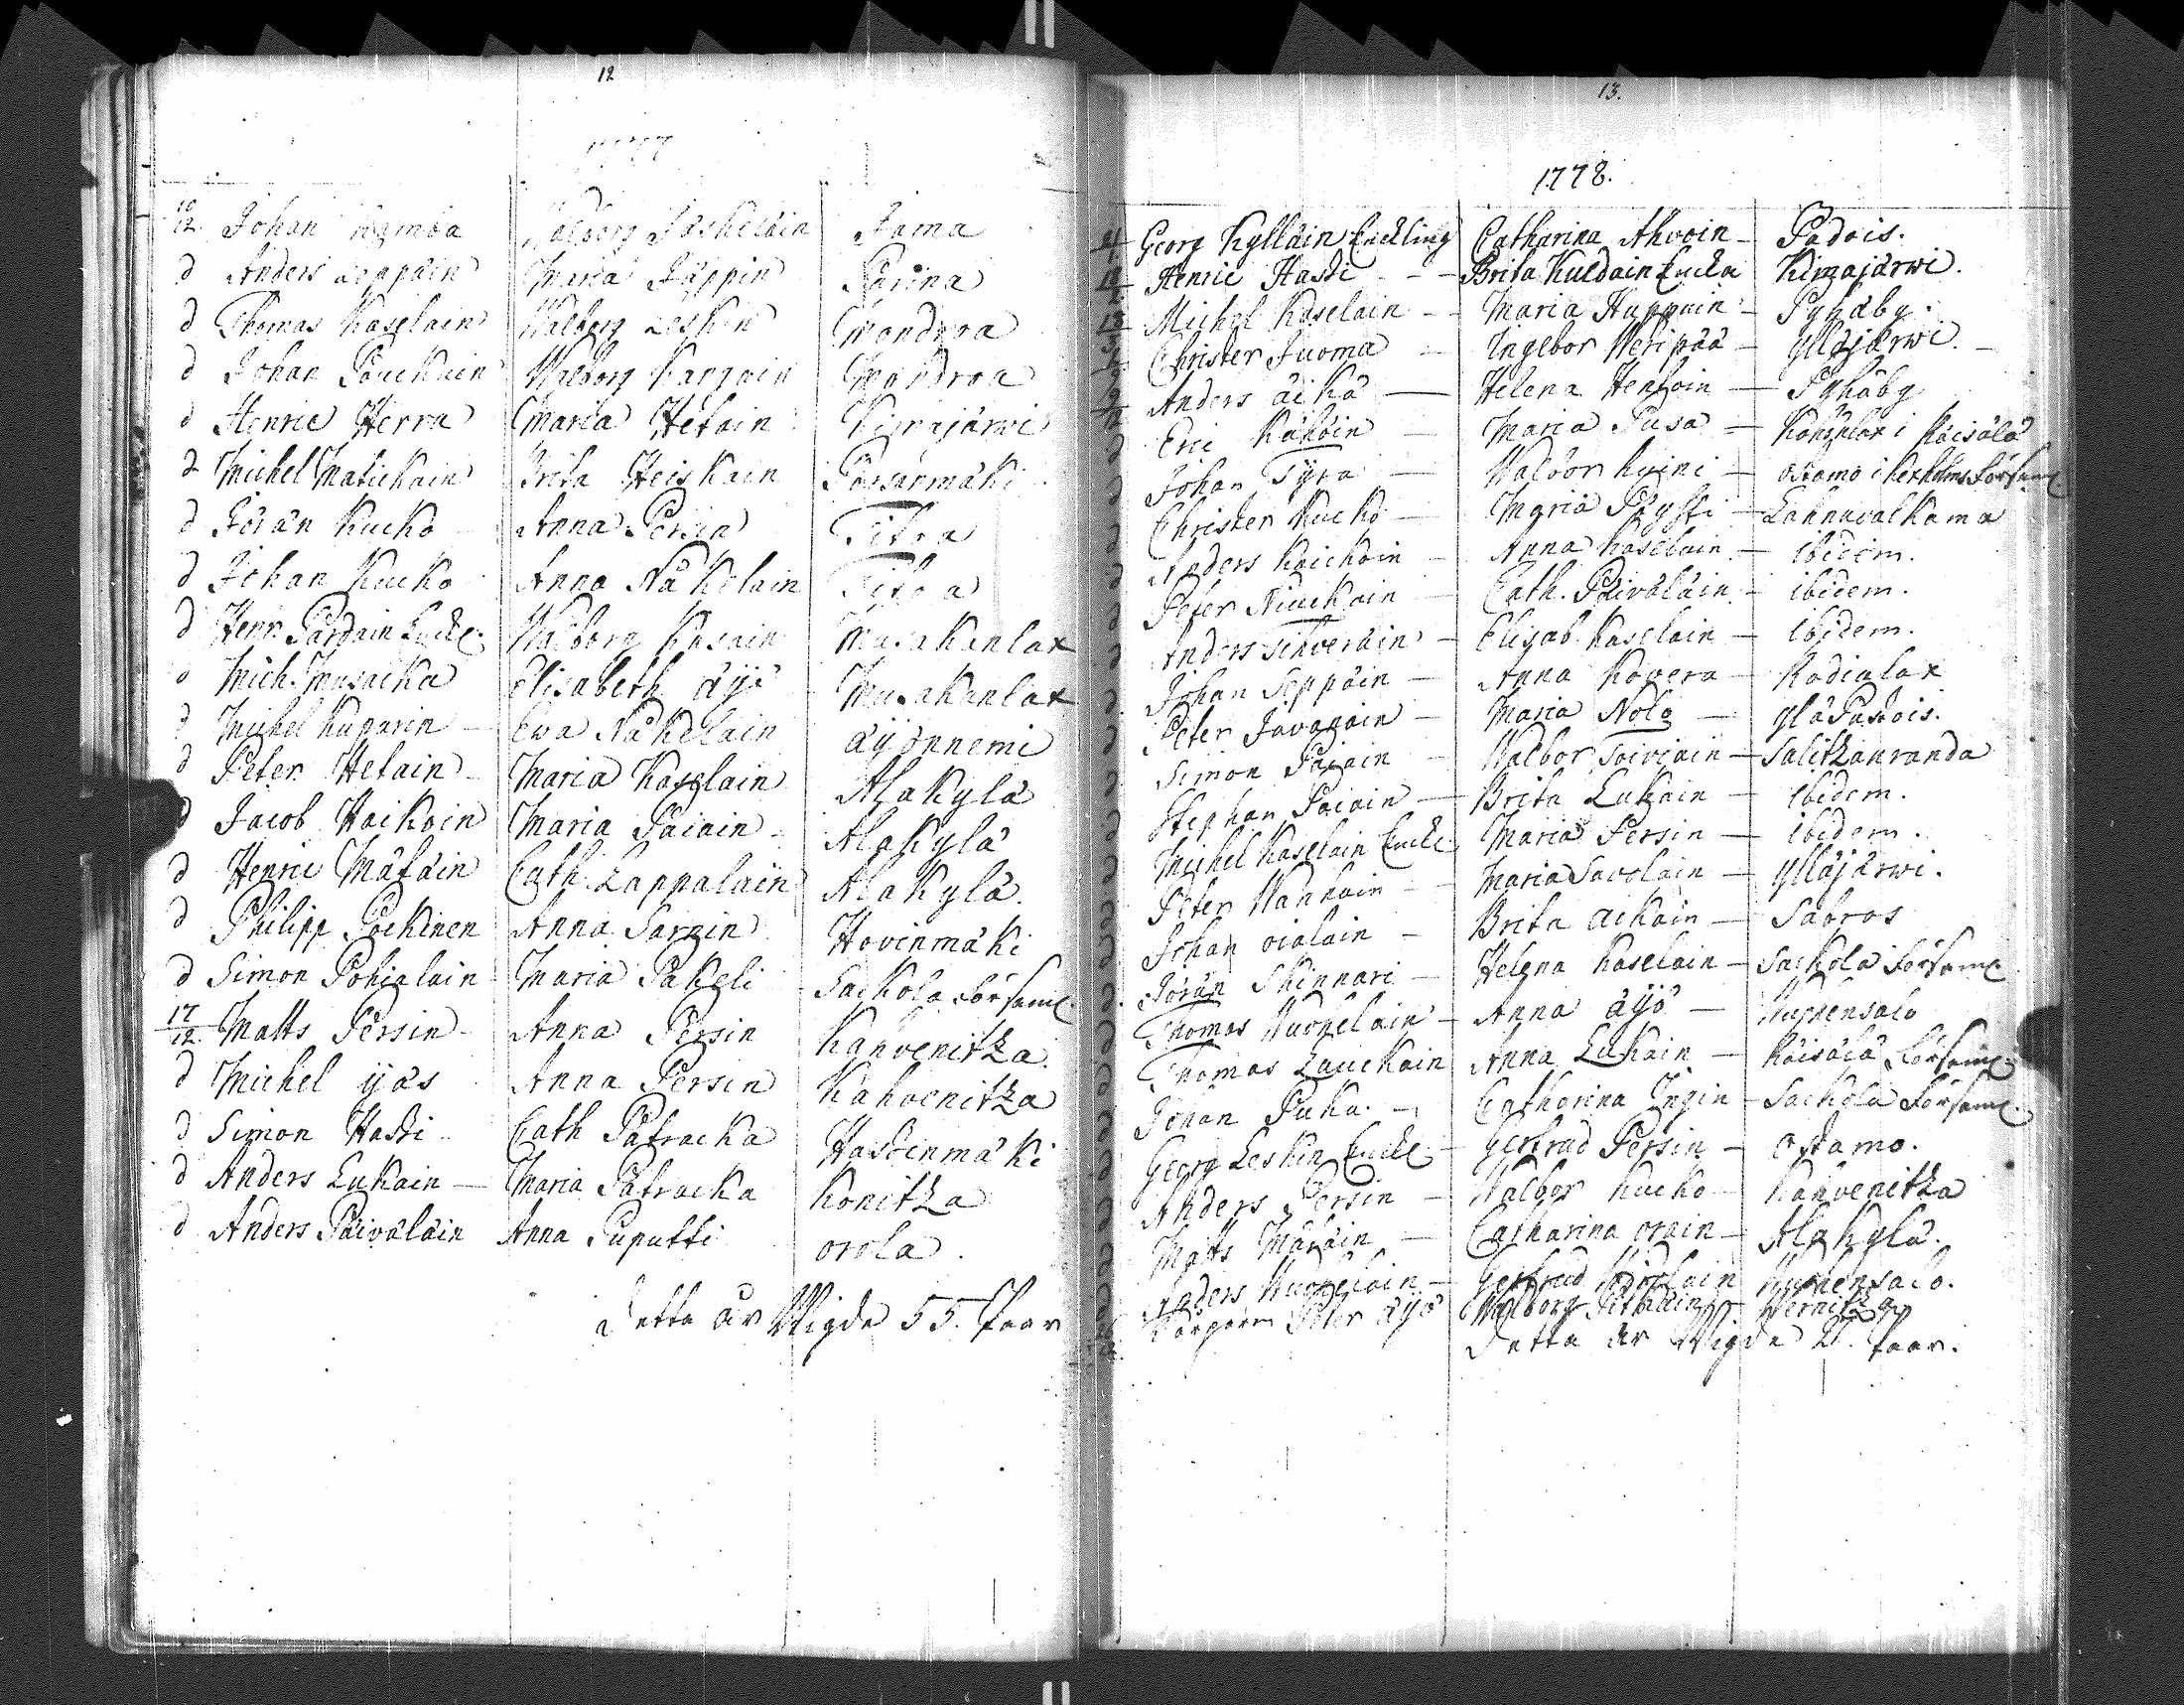 12
1777
10/12. Johan Rämbä Walborg Jäskeläin Jama
d Anders Leppäin Maria Jäppin Pärina
d Thomas Kaselain Walborg Leskin Mondroa
d Johan Pauckuin Walborg Kangain Mondroa
d Henric Herra Maria Hetain Kimajärwi
d Michel Matickain Brita Heiskain Porsanmäki
d Jörän Kucko Anna Persin Titoa
d Johan Kucko Anna Näkelain Titoa
d Henr. Pärdain Enckl. Walborg Kusain Musakanlax
d Mich. Musacka Elisabeth äÿö Musakanlax
d Michel Kuparin Ewa Näkelain äÿönnemi
d Peter Hetain Maria Kaselain Alakylä
d Jacob Haikoin Maria Päiain Alakylä
d Henric Mätäin Cath. Lappalain Alakylä.
d Philipp Pockinen Anna Sarnin Hovinmäki
d Simon Pohialain Maria Pakeli Sackola Församl.
17/12. Matts Persin Anna Persin Kahvenitza
d Michel ijäs Anna Persin Kahvenitza
d Simon Hasti Cath Patracka Hastinmäki
d Anders Lukain Maria Patracka Konitza
d Anders Päiväläin Anna Puputti orola.
Detta år Wigde 55. Paar
13.
1778.
Georg Kylläin Enckling Catharina Ahvoin Padois.
Henric Hasti Brita Kuldain Encka Kimajärwi.
Michel Kaselain Maria Huppuin Pyhäby.
Christer Juoma Ingebor Weripää Ylläjärwi.
Anders äikä Helena Henfoin Pyhäby
d Eric Kähöin Maria Pusa Konnulax i Räisälä
d Johan Tÿra Walbor Kuini ostamo i Kexholms Församl
d Christer Kucko Maria Päysti Lahnavalkama
d Anders Kaickoin Anna Kaselain ibidem.
d Peter Niuckain Cath. Päiväläin ibidem.
d Anders Sihveräin Elisab. Kaselain ibidem.
d Johan Seppäin Anna Kovera Kadialax
d Peter Javanain Maria Nolo YläPadois.
d Simon Päiain Walbor Toiviain Salitzanranda
d Stephan Paiain Brita Lukain ibidem.
d Michel Kaselain Enckl. Maria Persin ibidem.
d Peter Hannain Maria Savolain Ylläjärwi.
d Johan oialain Brita Aikäin Sabros
d Jörän Skinnari Helena Kaselain Sackola Församl.
d Thomas Wuorelain Anna äÿö Huppensalo
d Thomas Lauckain Anna Lukain Räisälä Församl.
d Johan Puku. Catharina Ingin Sackola Församl.
d Georg Leskin Enckl. Gertrud Persin ostamo.
d Anders Persin Walbor Kucko Kahvenitza
d Matts Mätäin Catharina orain Alakylä.
d Anders Wuorelain Gertrud Huppensalo.
Peter äÿö Walborg Wernitza
Detta år Wigde Paar.